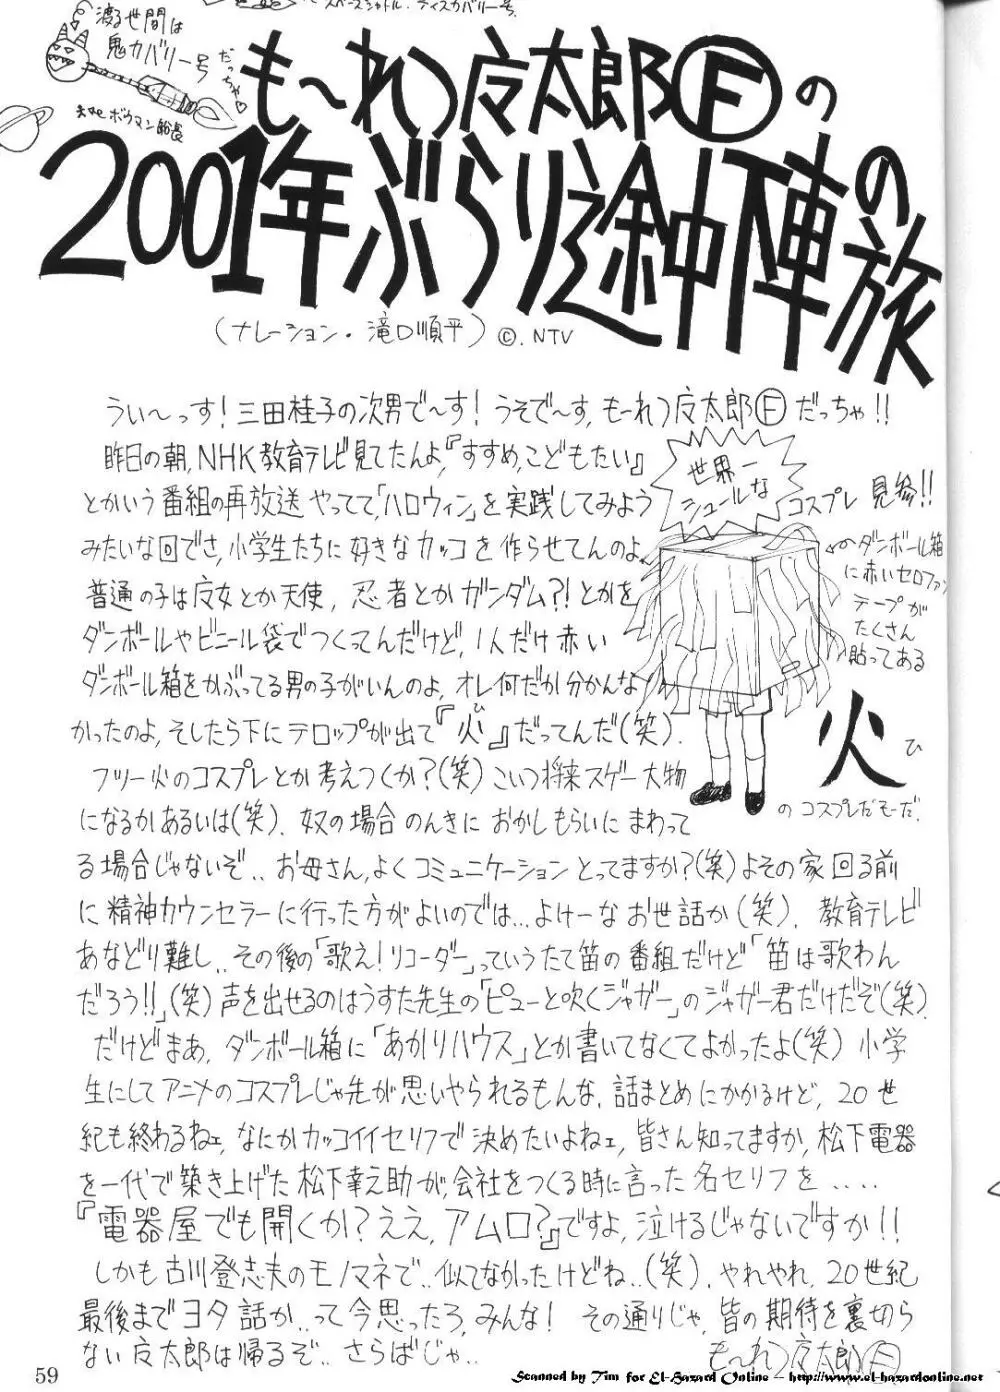 スペースシャトル・ディスカバリー号。
渡る世間は
鬼カバリー号
だっちゃ♡
ボウマン船長
も〜れつ应太郎Ⓕの
2001年ぶらり途中下車の旅
(ナレーション・滝口順平)©.NTV
うぃ〜っす!三田桂子の次男で〜す!うそで〜す,も〜れつ应太郎Ⓕだっちゃ!!
昨日の朝,NHK教育テレビ見てたんよ,『すすめ,こどもたい』
とかいう番組の再放送やってて,「ハロウィン」を実践してみよう
みたいな回でさ,小学生たちに好きなカッコを作らせてんのよ
普通の子は应女とか天使,忍者とかガンダム?!とかを
ダンボールやビニール袋でつくってんだけど,1人だけ赤い
ダンボール箱をかぶってる男の子がいんのよ,オレ何だか分かんな
かったのよ,そしたら下にテロップが出て『火』だってんだ(笑).
ひ
フツー火のコスプレとか考えつくか?(笑)こいつ将来スゲー大物
になるかあるいは(笑).奴の場合のんきにおかしもらいにまわって
る場合じゃないぞ..お母さん,よくコミュニケーションとってますか?(笑)よその家回る前
に精神カウンセラーに行った方がよいのでは...よけーなお世話か(笑).教育テレビ
あなどり難し..その後の「歌え!リコーダー」っていうたて笛の番組だけど「笛は歌わん
だろう!!」(笑)声を出せるのはうすた先生の「ピューと吹くジャガー」のジャガー君だけだぞ(笑).
だけどまあ,ダンボール箱に「あかりハウス」とか書いてなくてよかったよ(笑)小学
生にしてアニメのコスプレじゃ先が思いやられるもんな.話まとめにかかるけど,20世
紀も終わるねェ,なにかカッコイイセリフで決めたいよねェ,皆さん知ってますか,松下電器
を一代で築き上げた松下幸之助が,会社をつくる時に言った名セリフを....
『電器屋でも開くか?ええ,アムロ?』ですよ,泣けるじゃないですか!!
しかも古川登志夫のモノマネで..似てなかったけどね..(笑).やれやれ,20世紀
最後までヨタ話か..って今思ったろ,みんな! その通りじゃ,皆の期待を裏切ら
ない应太郎は帰るぞ..さらばじゃ..
も〜れつ应太郎Ⓕ
世界一
シュールな
コスプレ 見参!!
ダンボール箱
に赤いセロファン
テープが
たくさん
貼ってある
火
ひ
のコスプレだそーだ.
59
Scanned by Tim for El-Hazard Online – http://www.el-hazardonline.net